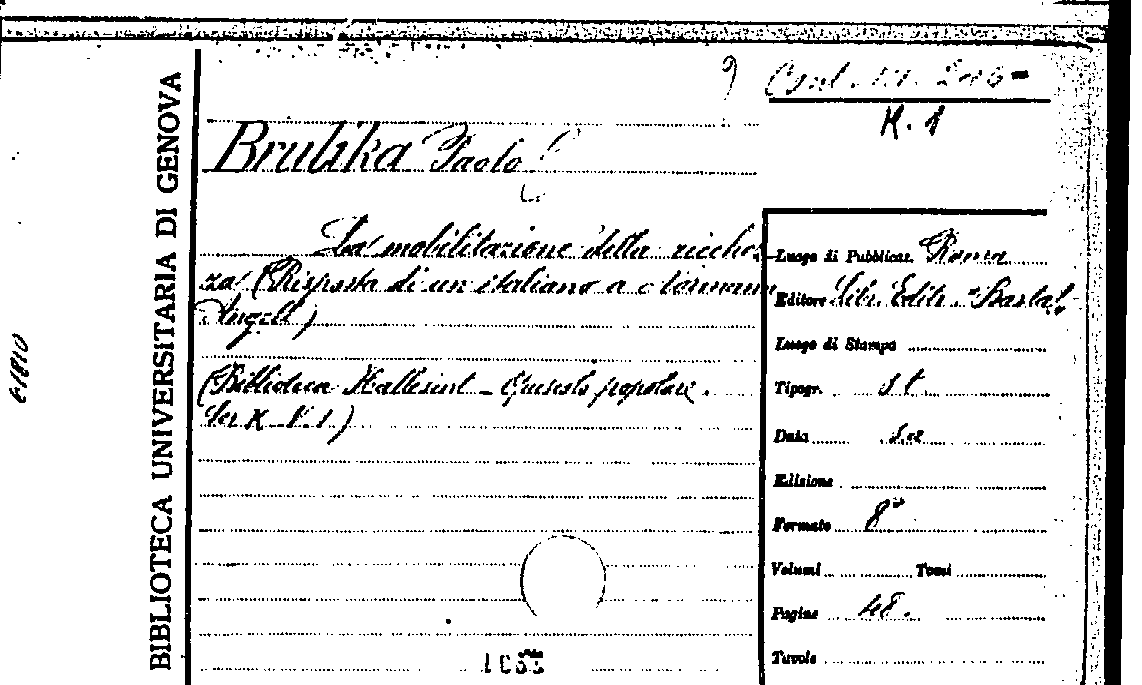 BIBLIOTECA UNIVERSITARIA DI GENOVA
K. 1
Brulika Paolo
La mobilitazione della ricchez-
za (Risposta di un italiano a Normann
Angell)
(Biblioteca popolare.
Ser K - N. 1.)
Luogo di Pubblicaz. Roma
Editore Libr. Editr.
Luogo di Stampa
Tipogr. s.t.
Data s.a
Edizione
Formato 8°
Volumi Tomi
Pagine 48.
Tavole